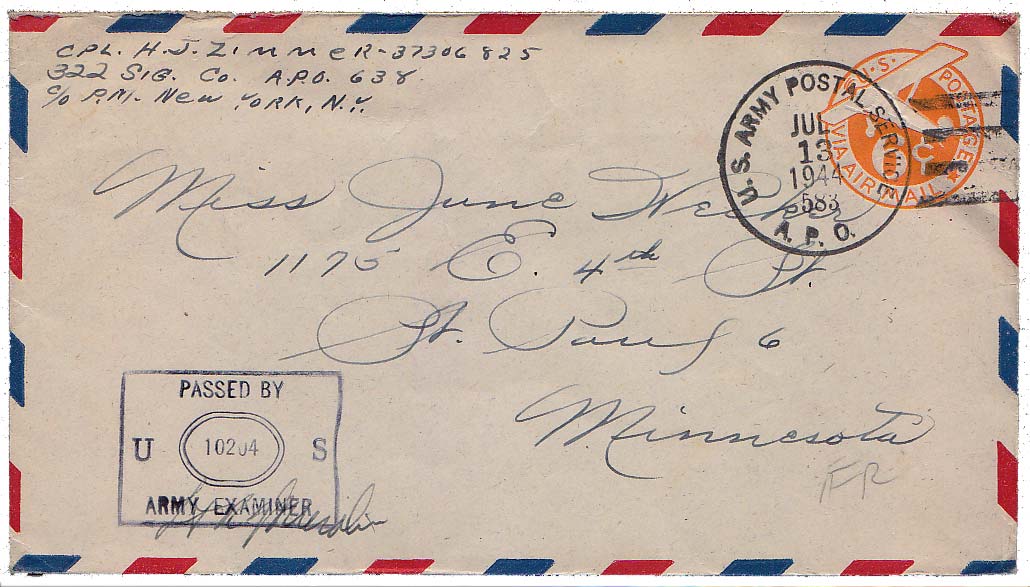 CPL. H. J. ZIMMER-37306825
322 SIG. Co. A.P.O. 638
C/O P.M. NEW YORK, N.Y.
U.S. ARMY POSTAL SERVICE
JUL
13
1944
583
A.P.O.
U.S. POSTAGE
VIA AIR MAIL
Miss June
1175 E. 4th St.
St. Paul 6
Minnesota
PASSED BY
U 10204 S
ARMY EXAMINER
FR